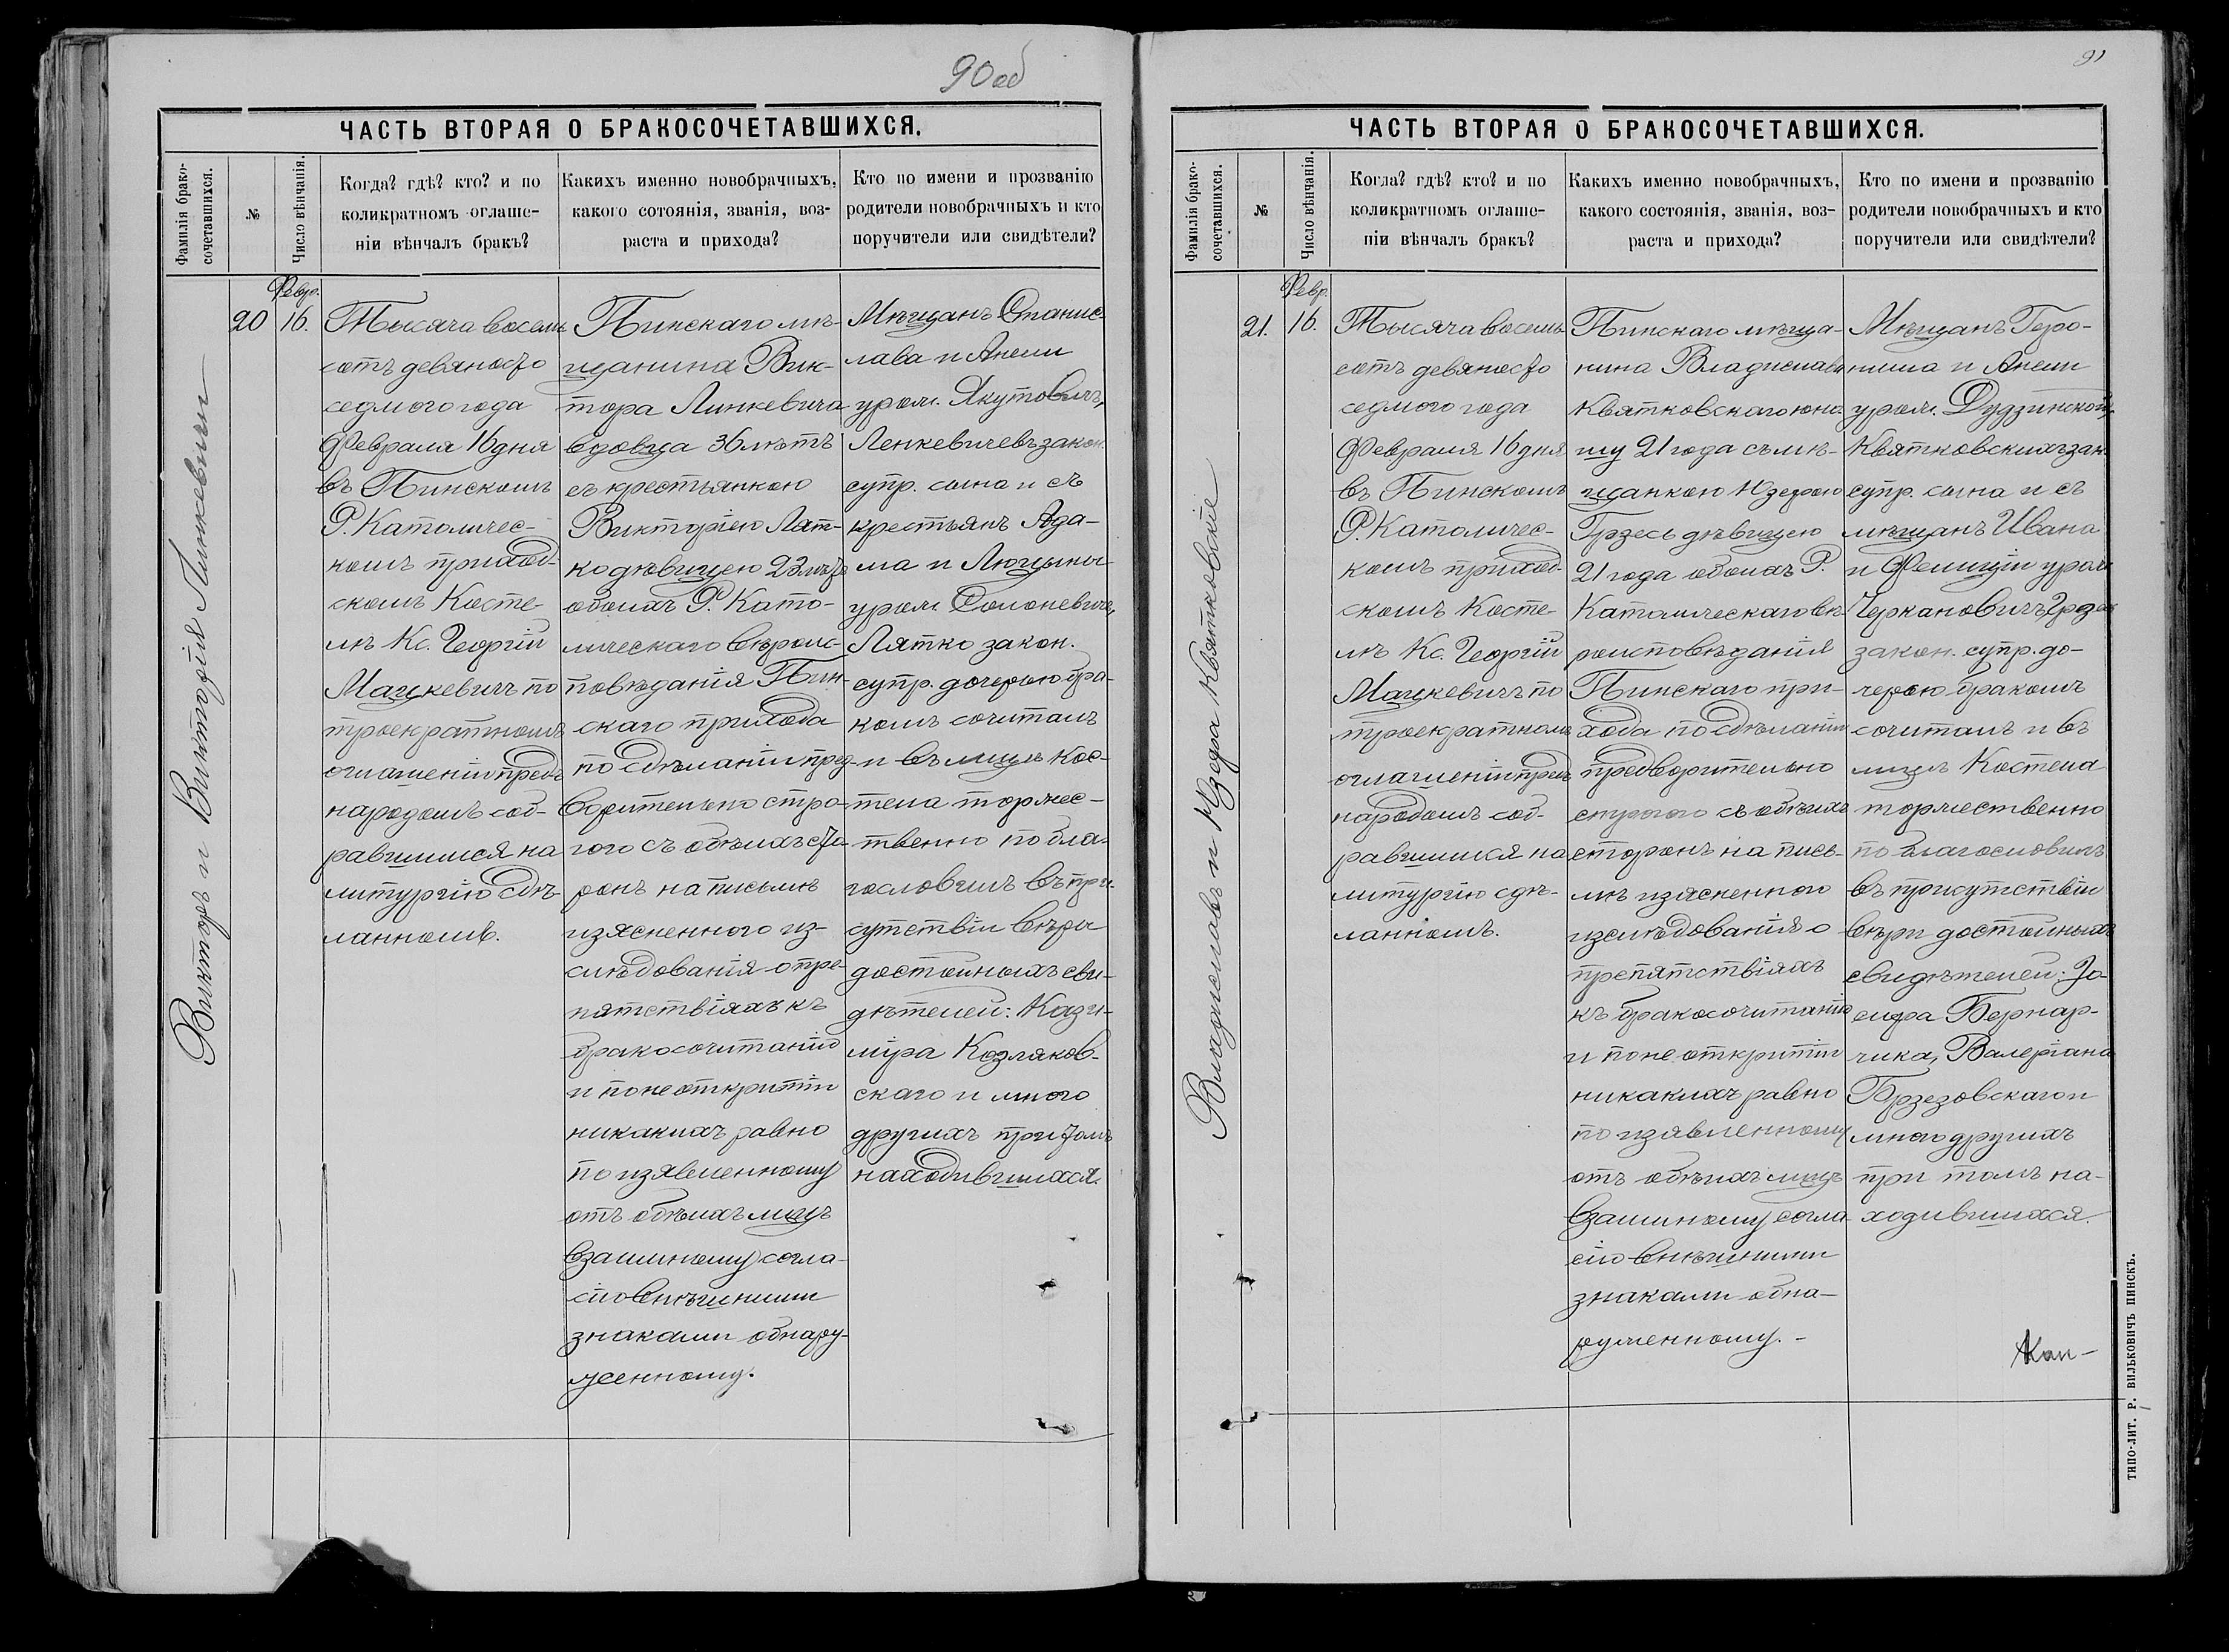 90 об
ЧАСТЬ ВТОРАЯ О БРАКОСОЧЕТАВШИХСЯ.
Фамилія брако-
сочетавшихся.
№
Число вѣнчанія.
Когда? гдѣ? кто? и по
коликратномъ оглаше-
ніи вѣнчалъ бракъ?
Какихъ именно новобрачныхъ,
какого сотоянія, званія, воз-
раста и прихода?
Кто по имени и прозванію
родители новобрачныхъ и кто
поручители или свидѣтели?
Викторъ и Викторія Линкевичи
20
Февр.
16.
Тысяча восемь
сотъ девяносто
седмого года
Февраля 16 дня
въ Пинскомъ
Р. Католичес-
комъ приход-
скомъ Косте-
лѣ Кс. Георгій
Мацкевичъ по
троекратномъ
оглашеніи предъ
народомъ соб-
равшимся на
литургію сдѣ-
ланномъ.
Пинскаго мѣ-
щанина Вик-
тора Линкевича
вдовца 36 лѣтъ
съ крестьянкою
Викторіею Лят-
ко дѣвицею 23 лѣтъ
обоихъ Р. Като-
лическаго вѣроис-
повѣданія Пин-
скаго прихода
по сдѣланіи пред-
ворительно стро-
гого съ обѣихъ сто-
ронъ на письмѣ
изясненного из-
слѣдованія о пре-
пятствіяхъ къ
бракосочитанію
и по не открытіи
никакихъ равно
по изявленному
отъ обѣихъ лицъ
взаимному согла-
сію внѣшними
знаками обнару-
женному.
Мѣщанъ Станис-
лава и Анели
урож. Якутовичъ,
Ленкевичевъ закон.
супр. сына и съ
крестьянъ Ада-
ма и Люцыны
урож. Солоневичъ,
Лятко закон.
супр. дочерью бра-
комъ сочиталъ
и въ лицѣ Кос-
тела торжес-
твенно побла-
гословилъ въ при-
сутствіи вѣры
достойныхъ сви-
дѣтелей: Кази-
міра Козляков-
скаго и много
другихъ при томъ
находившихся.
91
ЧАСТЬ ВТОРАЯ О БРАКОСОЧЕТАВШИХСЯ.
Фамилія брако-
сочетавшихся.
№
Число вѣнчанія.
Когла? гдѣ? кто? и по
коликратномъ оглаше-
ніи вѣнчалъ бракъ?
Какихъ именно новобрачныхъ,
какого состоянія, званія, воз-
раста и прихода?
Кто по имени и прозванію
родители новобрачныхъ и кто
поручители или свидѣтели?
Владиславъ и Юзефа Квятковскіе
21.
Февр.
16.
Тысяча восемь
сотъ девяносто
седмого года
Февраля 16 дня
въ Пинскомъ
Р. Католичес-
комъ приход-
скомъ Косте-
лѣ Кс. Георгій
Мацкевичъ по
троекратномъ
оглашеніи предъ
народомъ соб-
равшимся на
литургію сдѣ-
ланномъ.
Пинскаго мѣща-
нина Владислава
Квятковскаго юно-
шу 21 года съ мѣ-
щанкою Юзефою
Грзесь дѣвицею
21 года обоихъ Р.
Католическаго вѣ-
роисповѣданія
Пинскаго при-
хода по сдѣланіи
предворительно
строгого съ обѣихъ
сторонъ на пись-
мѣ изясненного
изслѣдованія о
препятствіяхъ
къ бракосочитанію
и по не открытіи
никакихъ равно
по изявленному
отъ обѣихъ лицъ
взаимному согла-
сію внѣшними
знаками обна-
руженному. -
Мѣщанъ Геро-
нима и Анели
урож. Дудзинской,
Квятковскихъ зак.
супр. сына и съ
мѣщанъ Ивана
и Фелиціи урож.
Черкановичъ Грзесь
закон. супр. до-
черью бракомъ
сочиталъ и въ
лицѣ Костела
торжественно
по благословилъ
въ присутствіи
вѣры достойныхъ
свидѣтелей: Іо-
сифа Бернар-
чика, Валеріана
Брзезовскаго и
много другихъ
при томъ на-
ходившихся.
ТИПО-ЛИТ. Р. ВИЛЬКОВИЧЪ ПИНСКЪ.